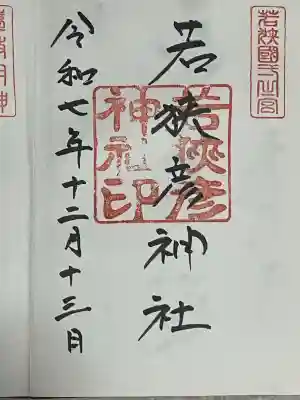 若狭國一宮
若狭彦神社
若狭彦
神社印
令和七年十二月十三日